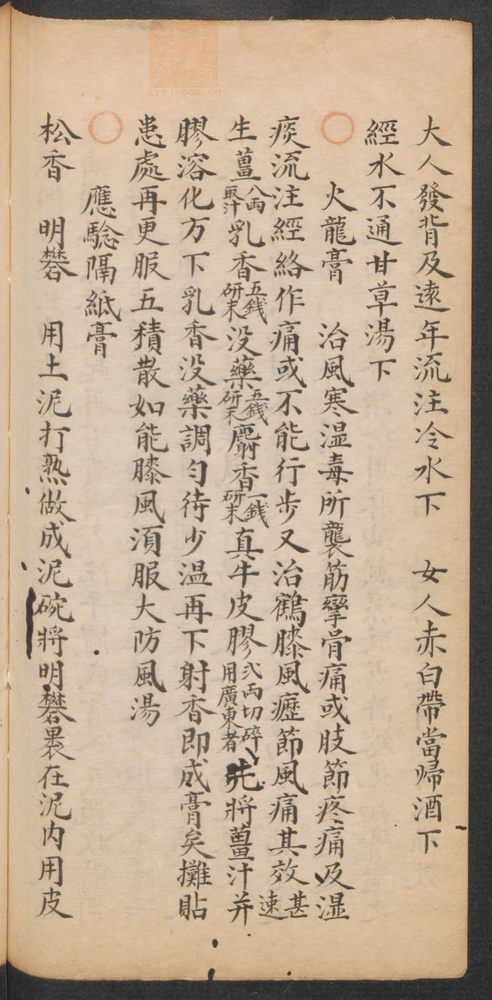 大人發背及遠年流注冷水下　女人赤白帶當歸酒下
經水不通甘草湯下
火龍膏　治風寒湿毒所襲筋孿骨痛或肢節疼痛及湿
痰流注經絡作痛或不能行步又治鶴膝風癧節風痛其效甚速
生薑八両取汁乳香五錢研末没藥五錢研末麝香一錢研末真牛皮膠弍両切碎用廣東者先將薑汁并
膠溶化方下乳香没藥調匀待少温再下射香即成膏矣攤貼
患處再更服五積散如能膝風湏服大防風湯
應騐隔紙膏
松香　明礬　用土泥打熟做成泥碗將明礬裹在泥内用皮